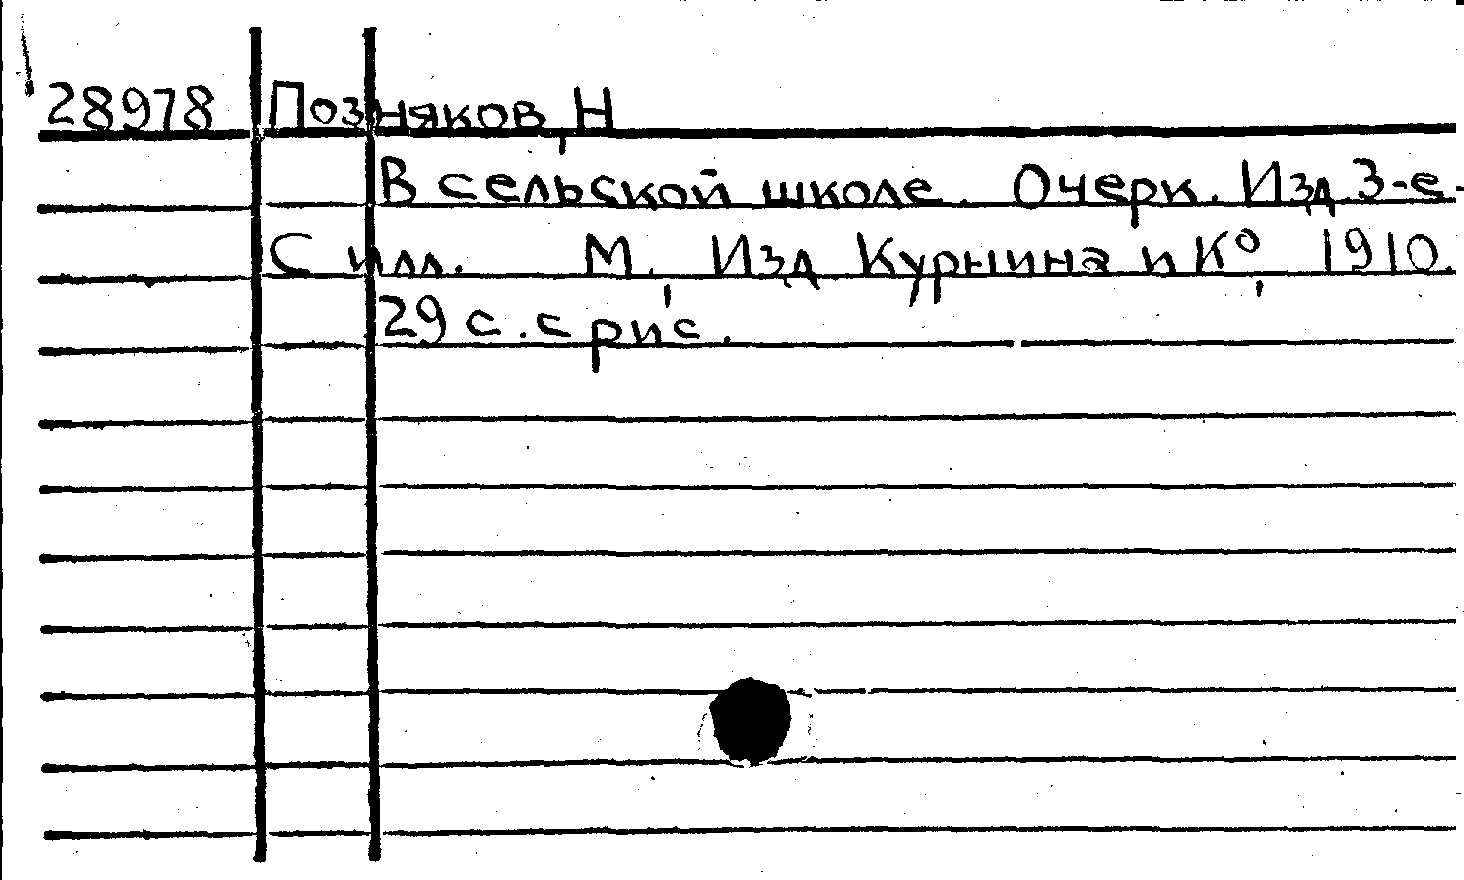 28978 Позняков, Н
В сельской школе. Очерк. Изд 3-е.
С илл. М, Изд Курнина и Ко, 1910.
29 с. с рис.